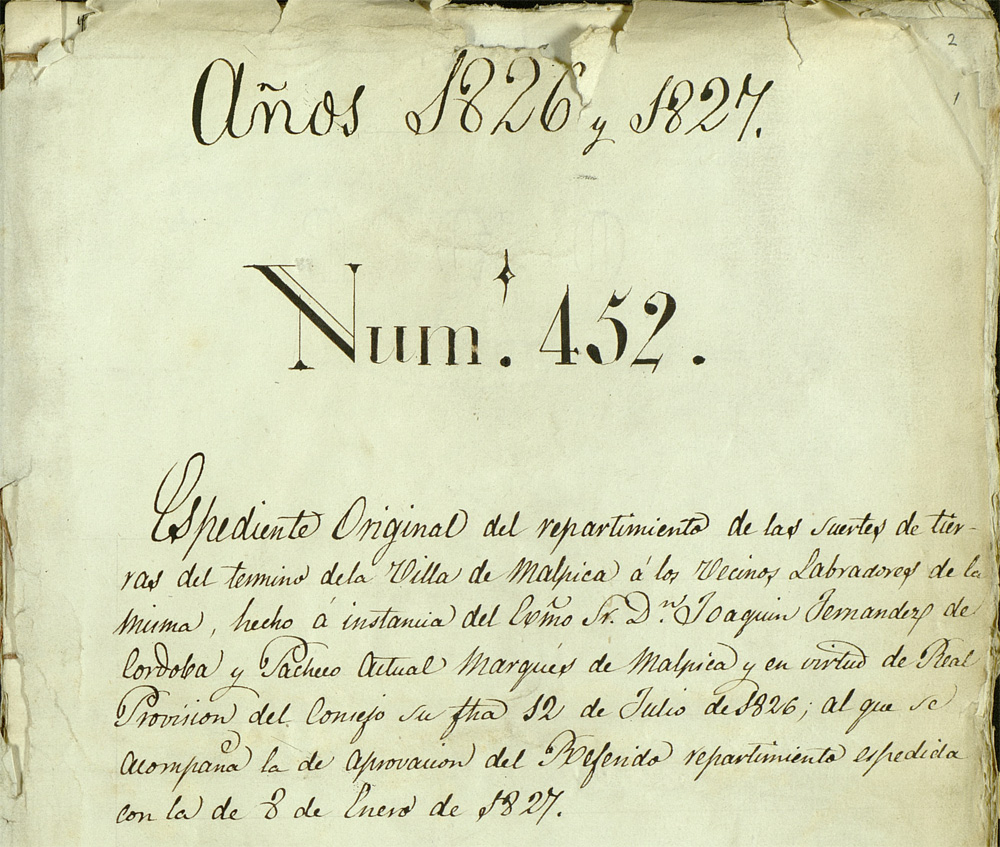 2
1
Años 1826 y 1827.
Num. 452.
Espediente Original del repartimiento de las suertes de tier-
ras del termino dela Villa de Malpica á los Vecinos Labradores de la
misma, hecho á instancia del Exmo Sr. Dn. Joaquin Fernandez de
Cordoba y Pacheco Actual Marqués de Malpica y en virtud de Real
Provision del Consejo su fha 12 de Julio de 1826; al que se
acompaña la de aprovacion del Referido repartimiento espedida
con la de 8 de Enero de 1827.